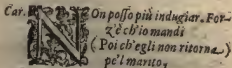 Car. NOn posso più indugiar. For-
z'è ch'io mandi
(Poi ch'egli non ritorna)
pe'l marito,